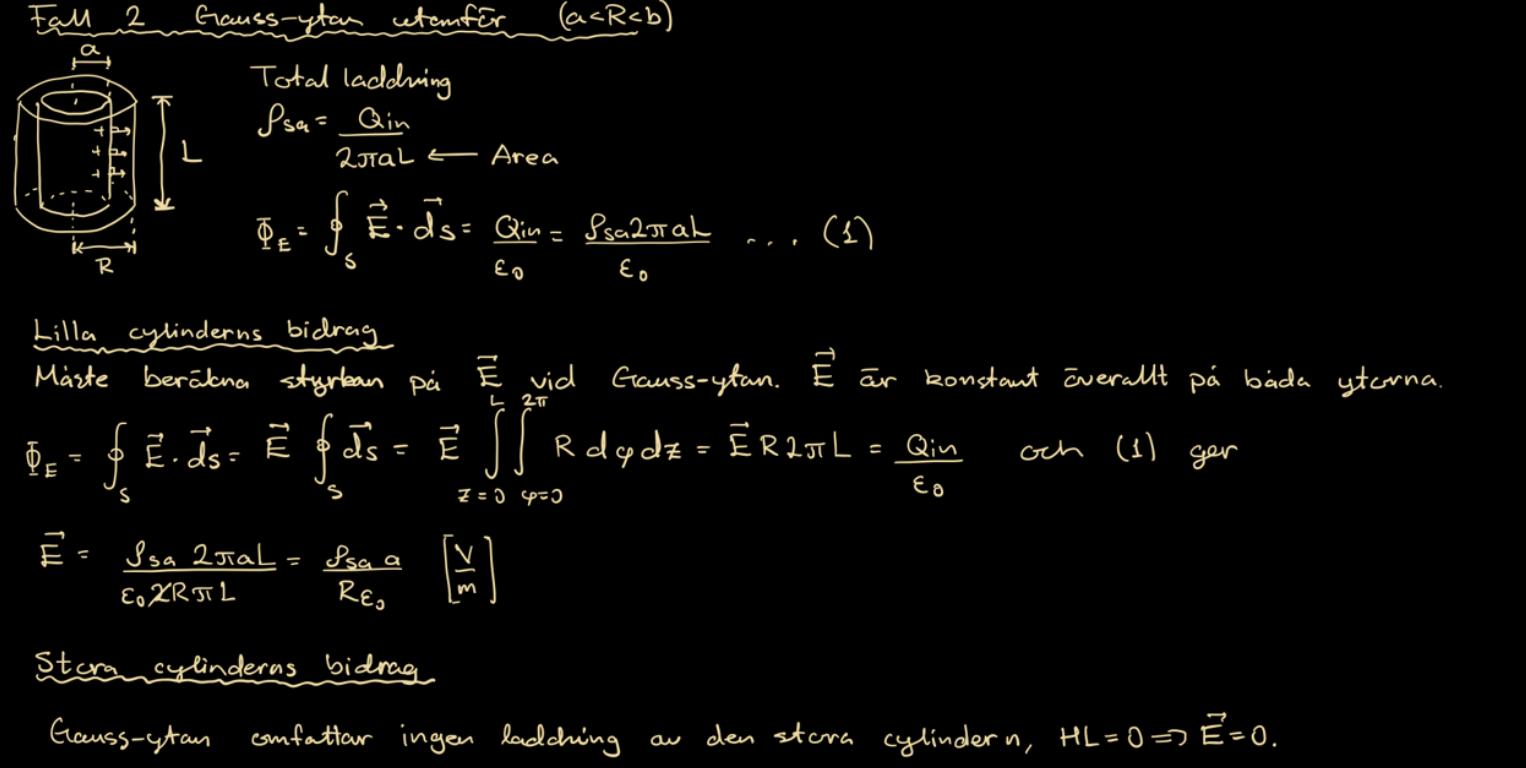 Fall 2 Gauss-ytan utomför (a<R<b)
a
L
R
Total laddning
ρsa = Qin / 2πaL ← Area
Φ_E = ∮_S E⃗ · ds⃗ = Qin / ε₀ = ρsa 2πaL / ε₀ ... (1)
Lilla cylinderns bidrag
Måste beräkna styrkan på E⃗ vid Gauss-ytan. E⃗ är konstant överallt på båda ytorna.
Φ_E = ∮_S E⃗ · ds⃗ = E⃗ ∮_S ds⃗ = E⃗ ∫_{z=0}^{L} ∫_{φ=0}^{2π} R dφ dz = E⃗ R 2π L = Qin / ε₀ och (1) ger
E⃗ = ρsa 2πaL / ε₀ 2RπL = ρsa a / Rε₀ [V/m]
Stora cylinderns bidrag
Gauss-ytan omfattar ingen laddning av den stora cylindern, HL=0 ⇒ E⃗=0.